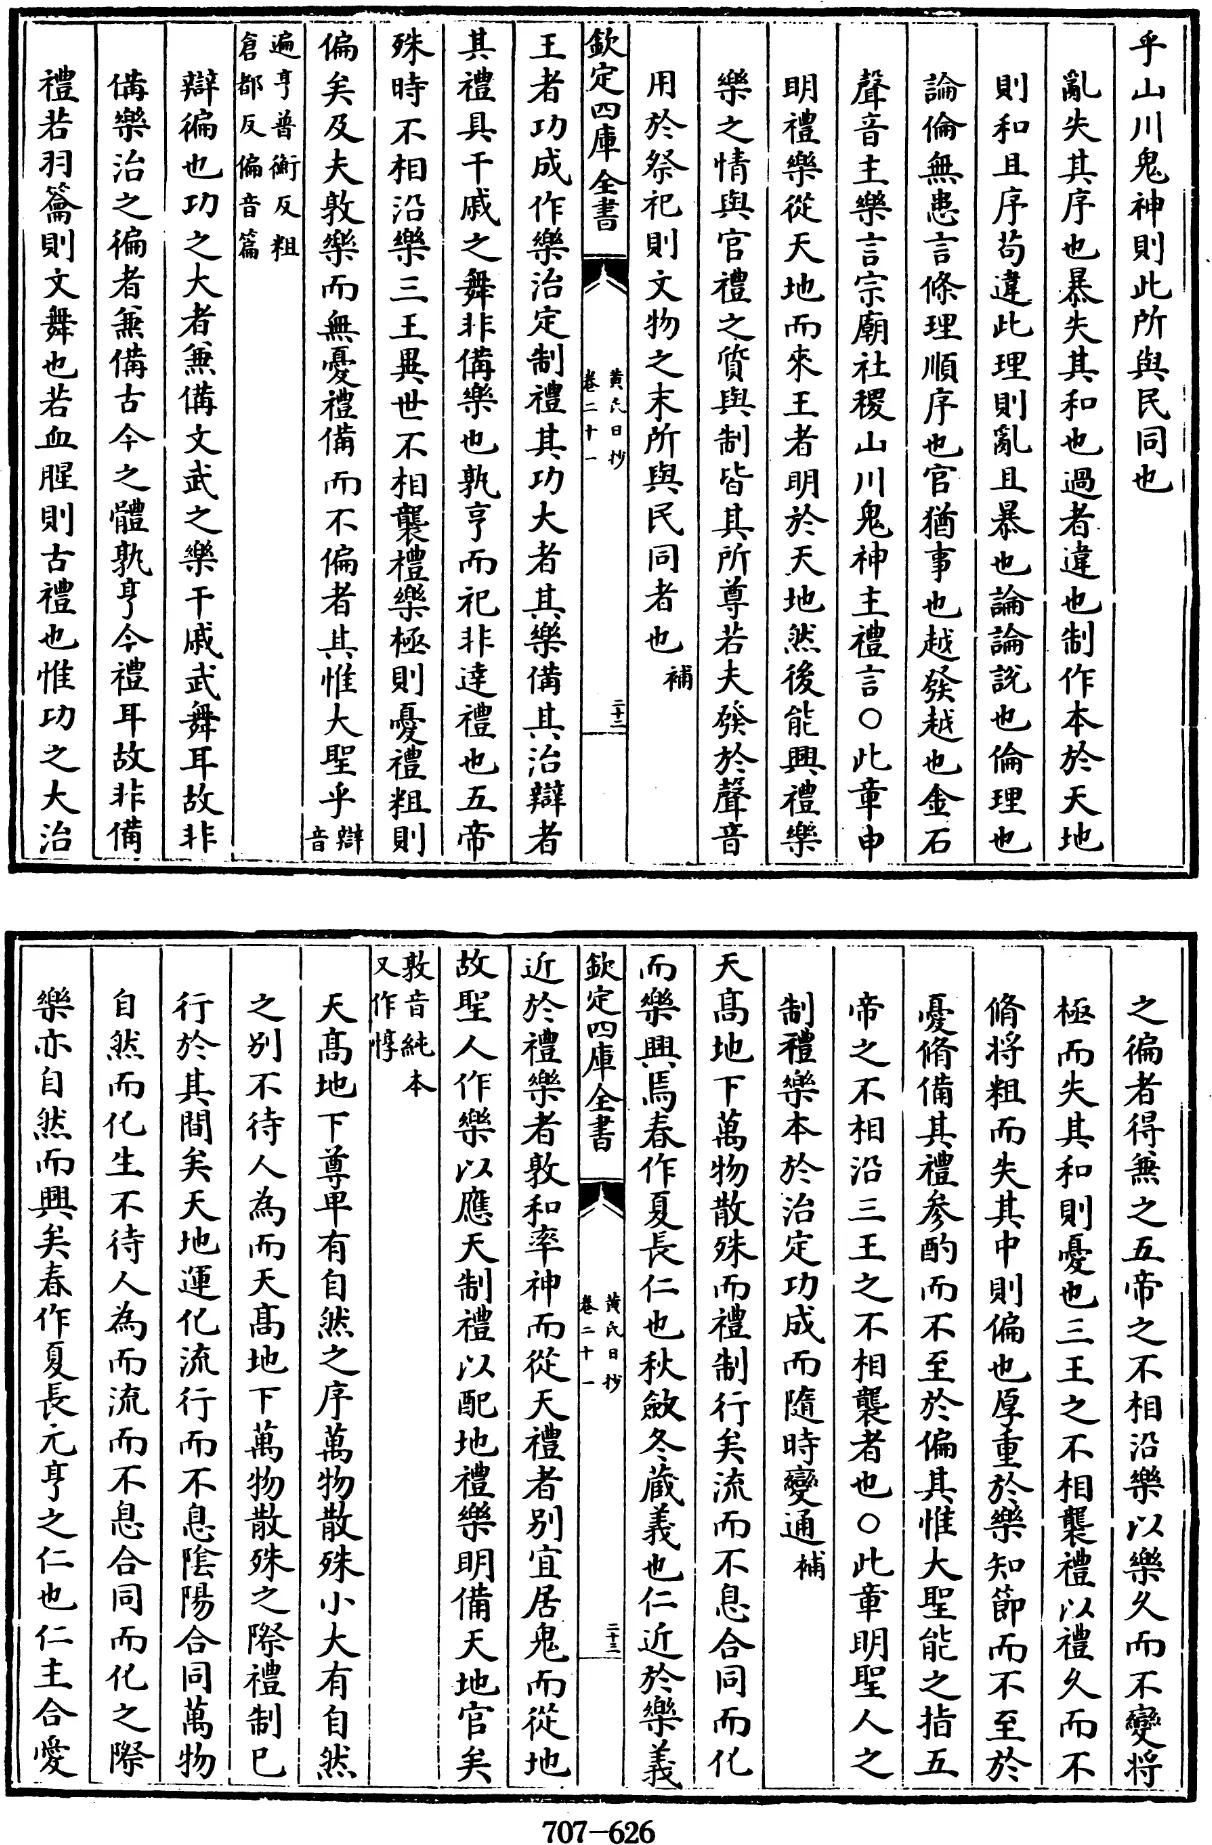 乎山川鬼神則此所與民同也
亂失其序也暴失其和也過者違也制作本於天地
則和且序苟違此理則亂且暴也論論說也倫理也
論倫無患言條理順序也官猶事也越發越也金石
聲音主樂言宗廟社稷山川鬼神主禮言○此章申
明禮樂從天地而來王者明於天地然後能興禮樂
樂之情與官禮之質與制皆其所尊若夫發於聲音
用於祭祀則文物之末所與民同者也補
欽定四庫全書
黃氏日抄
卷二十一
二十二
王者功成作樂治定制禮其功大者其樂備其治辯者
其禮具干戚之舞非備樂也孰亨而祀非達禮也五帝
殊時不相沿樂三王異世不相襲禮樂極則憂禮粗則
偏矣及夫敦樂而無憂禮備而不偏者其惟大聖乎辯
音
遍亨普衡反粗
倉都反偏音篇
辯徧也功之大者兼備文武之樂干戚武舞耳故非
備樂治之徧者兼備古今之體孰亨今禮耳故非備
禮若羽籥則文舞也若血腥則古禮也惟功之大治
之徧者得兼之五帝之不相沿樂以樂久而不變將
極而失其和則憂也三王之不相襲禮以禮久而不
脩將粗而失其中則偏也厚重於樂知節而不至於
憂脩備其禮參酌而不至於偏其惟大聖能之指五
帝之不相沿三王之不相襲者也○此章明聖人之
制禮樂本於治定功成而隨時變通補
天髙地下萬物散殊而禮制行矣流而不息合同而化
而樂興焉春作夏長仁也秋斂冬藏義也仁近於樂義
欽定四庫全書
黃氏日抄
卷二十一
二十三
近於禮樂者敦和率神而從天禮者別宜居鬼而從地
故聖人作樂以應天制禮以配地禮樂明備天地官矣
敦音純本
又作惇
天髙地下尊卑有自然之序萬物散殊小大有自然
之別不待人為而天髙地下萬物散殊之際禮制已
行於其間矣天地運化流行而不息陰陽合同萬物
自然而化生不待人為而流而不息合同而化之際
樂亦自然而興矣春作夏長元亨之仁也仁主合愛
707-626